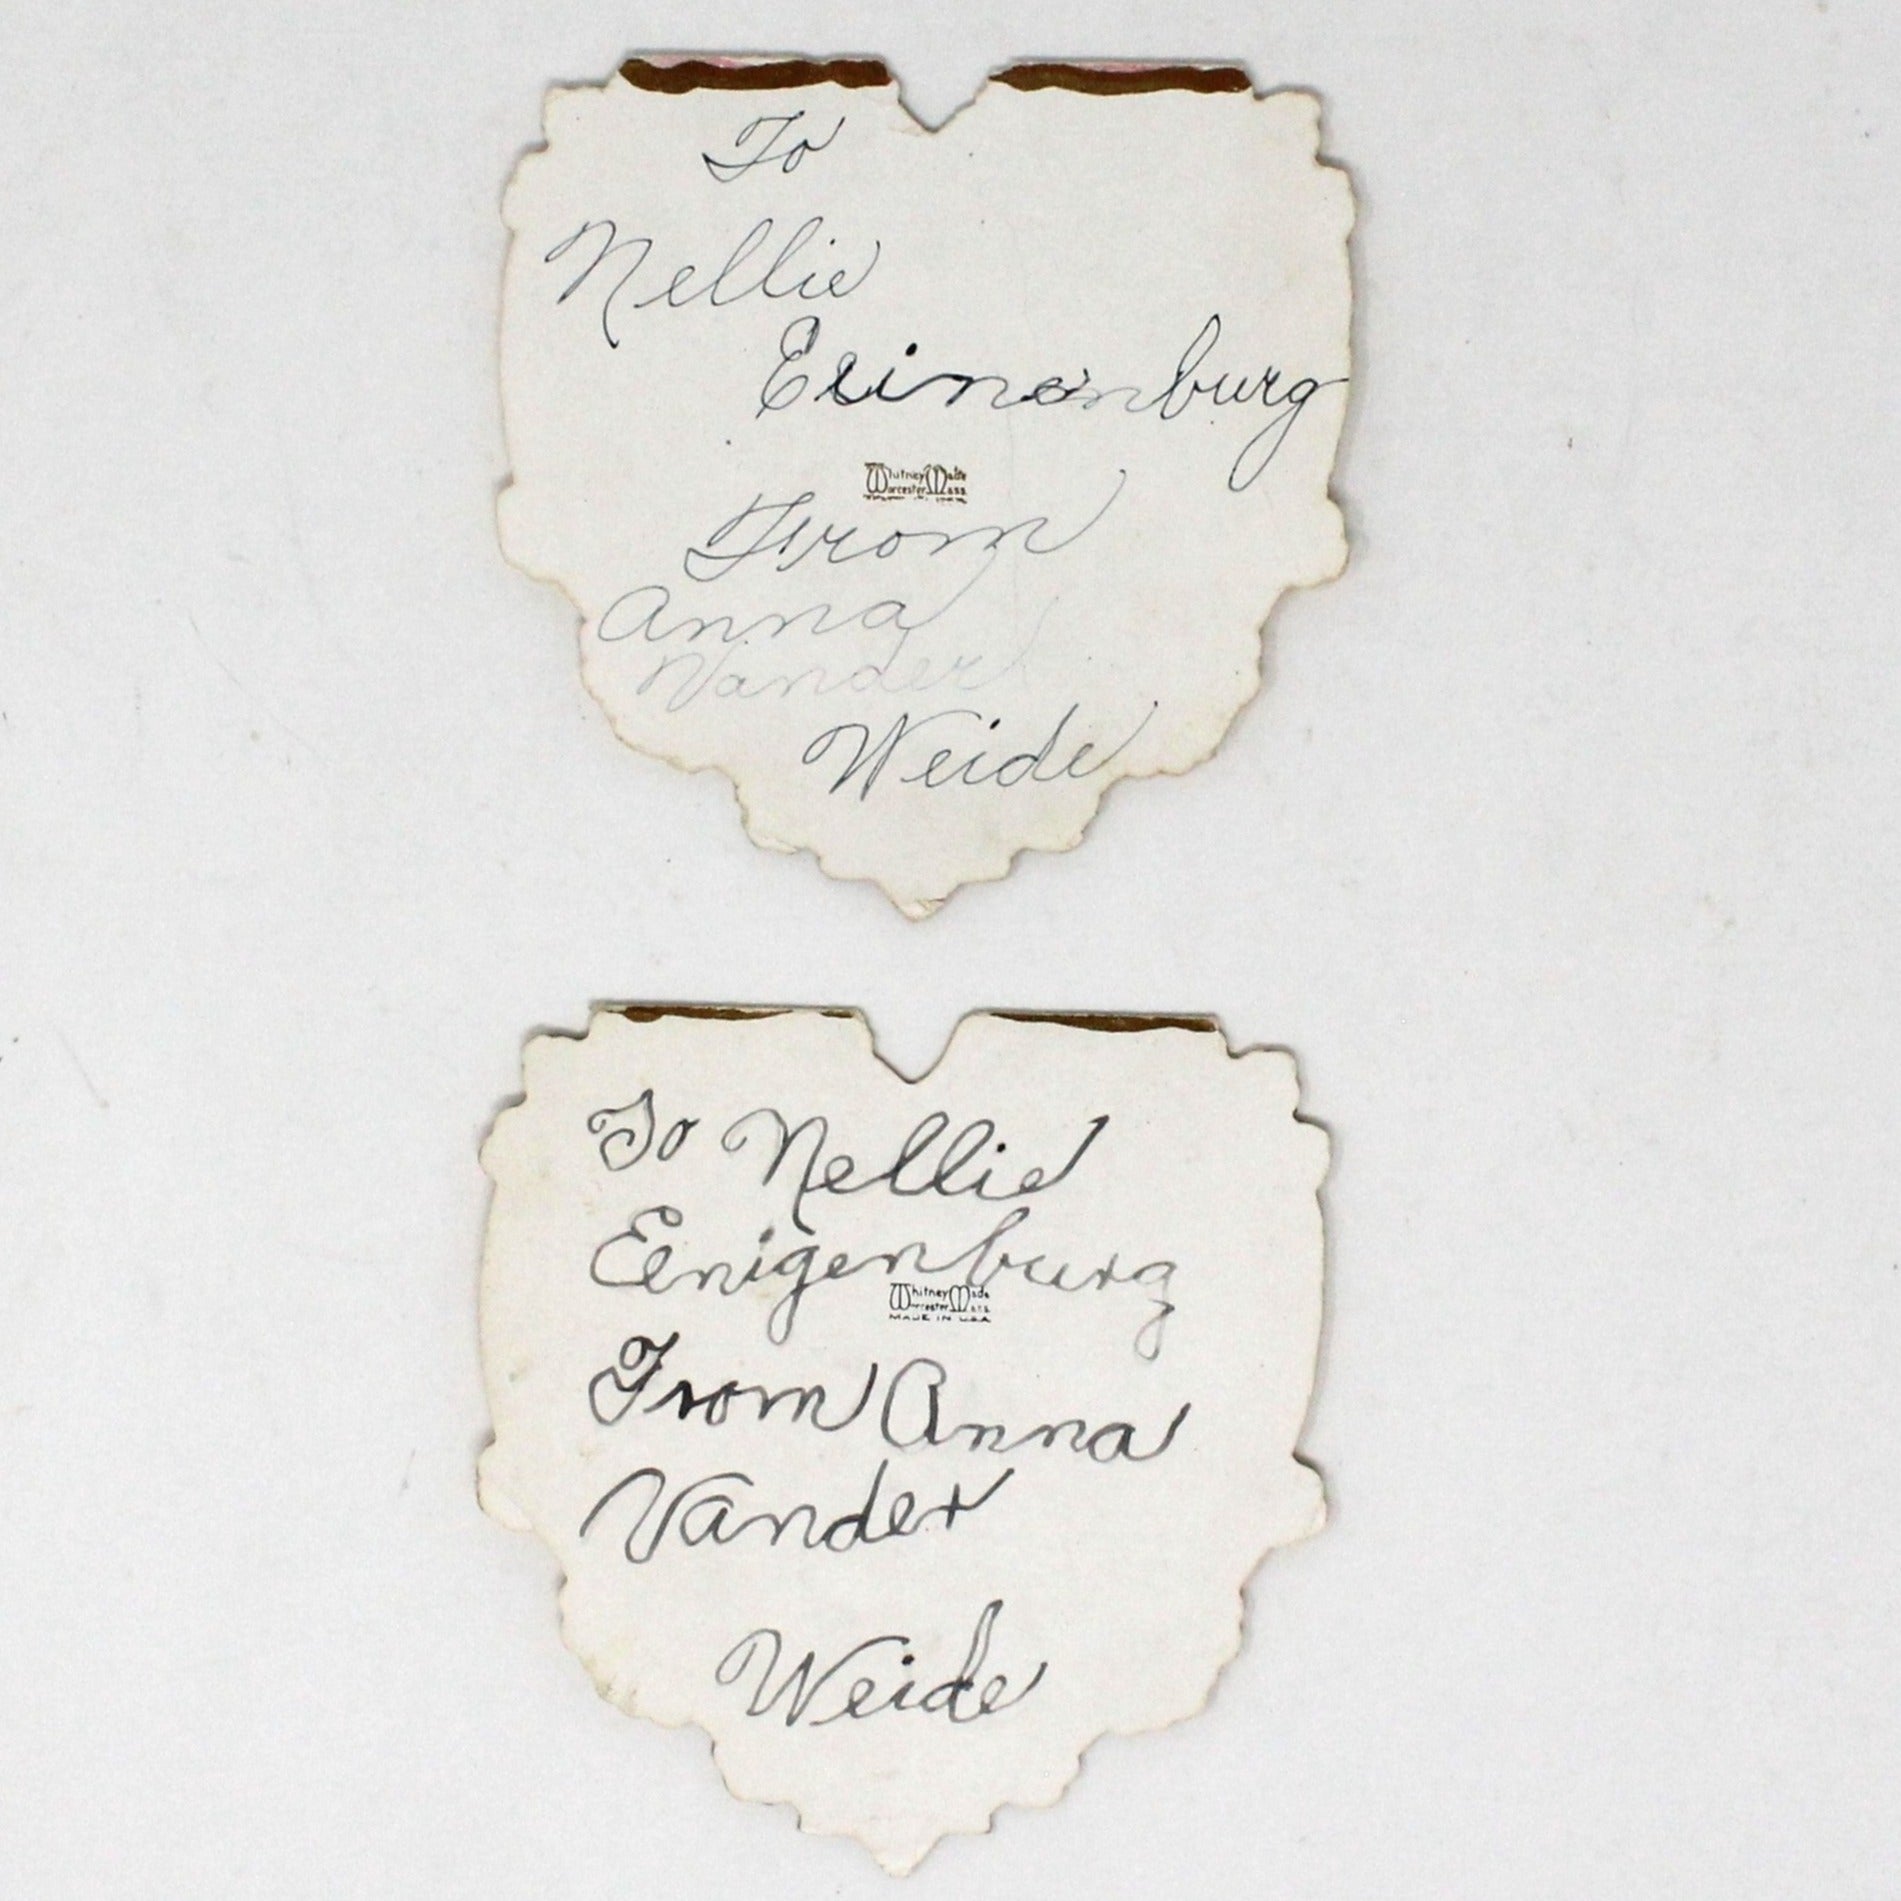 To
Nellie
Eeinenburg
Whitney Made
Worcester, Mass.
From
Anna
Vander
Weide
To Nellie
Eenigenburg
Whitney Made
Worcester, Mass.
MADE IN U.S.A
From Anna
Vander
Weide